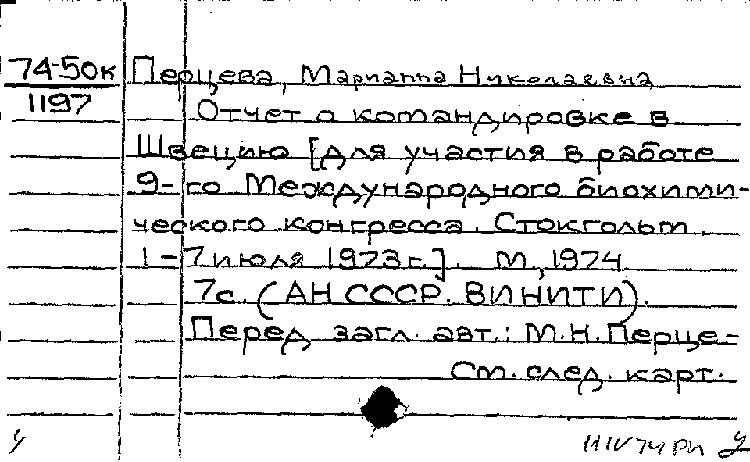 74-50к Перцева, Марианна Николаевна
1197 Отчет о командировке в
Швецию [для участия в работе
9-го Международного биохими-
ческого конгресса. Стокгольм.
1-7 июля 1973г.]. М., 1974.
7с. (АН СССР. ВИНИТИ).
Перед загл. авт.: М.Н.Перце-
См. след. карт.